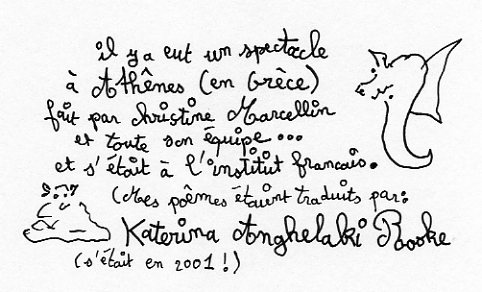 il y a eut un spectacle
à Athênes (en Grèce)
fait par christine Marcellin
et toute son équipe...
et s'était à l'institut francais.
(Mes poêmes étaient traduits par:
Katerina Anghelaki Rooke
(s'était en 2001!)